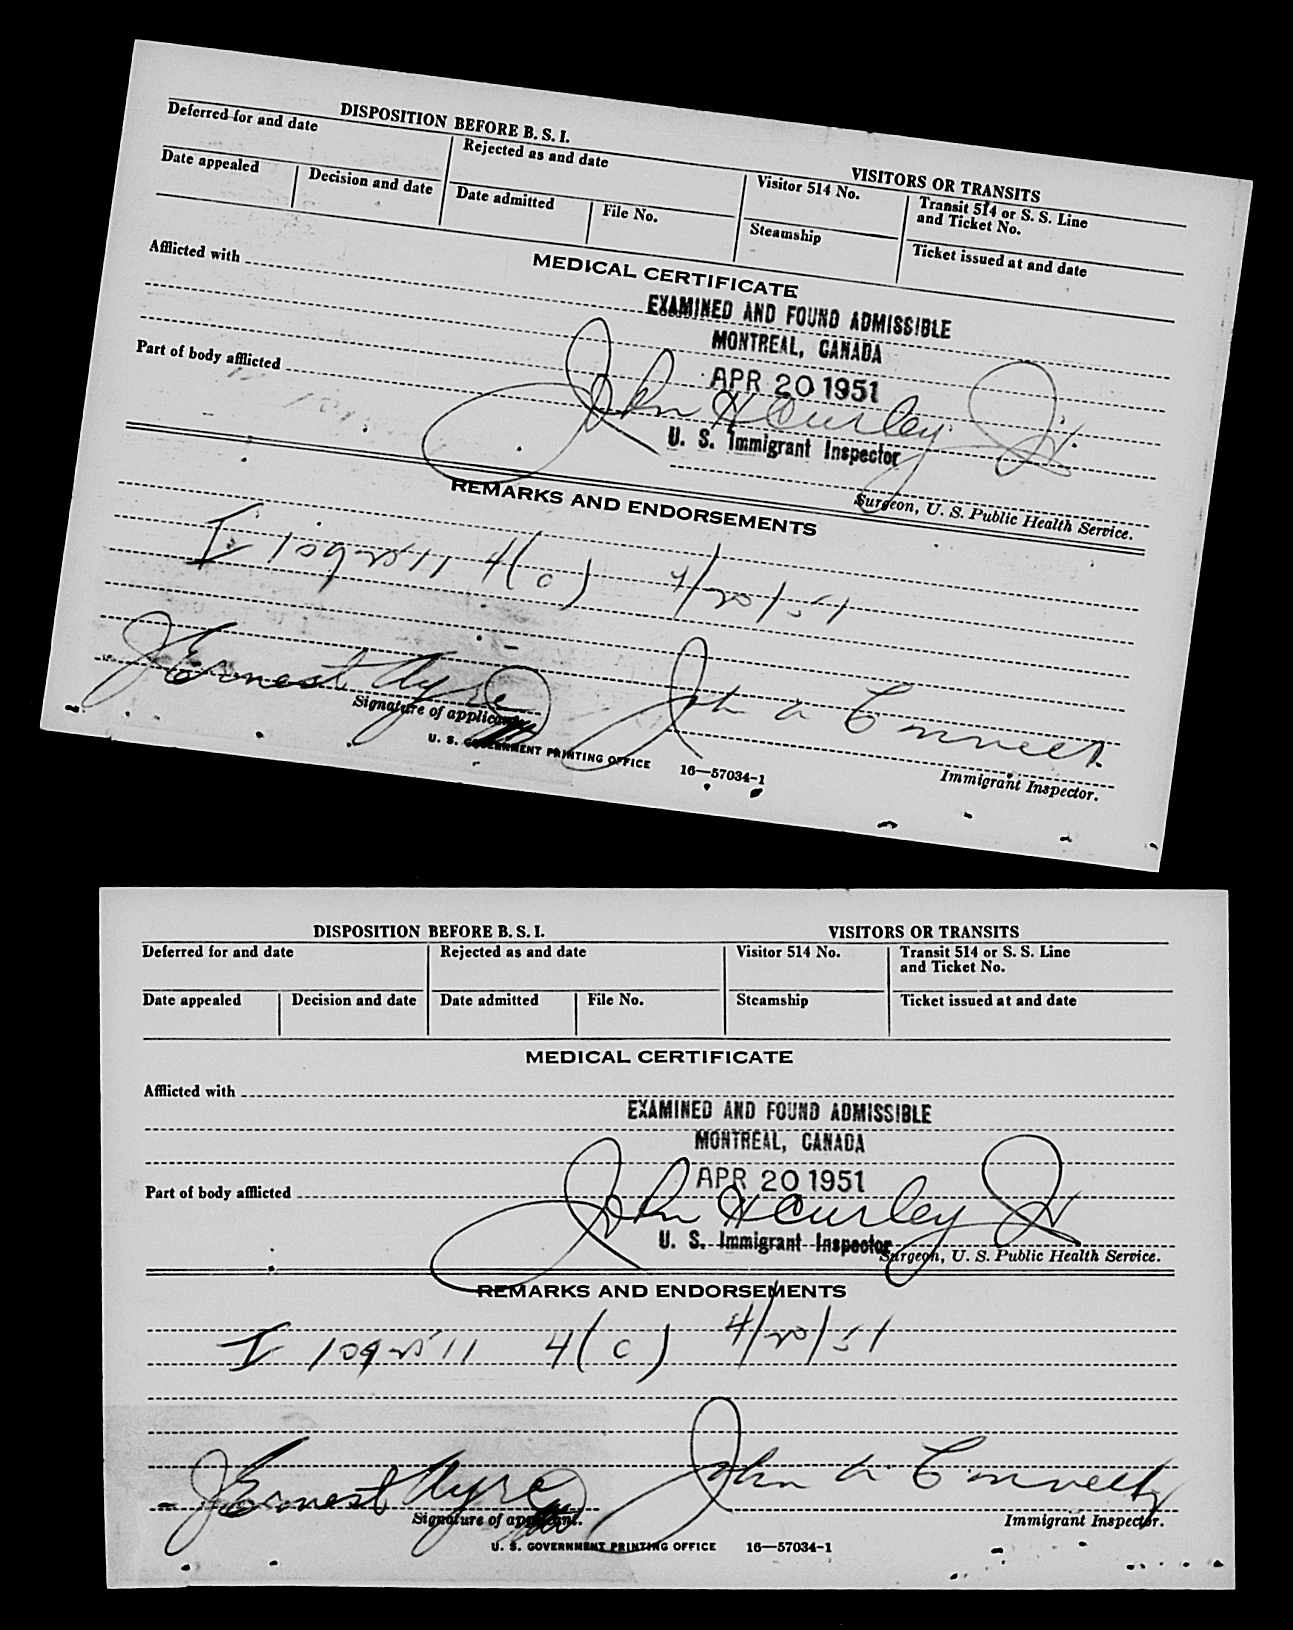 DISPOSITION BEFORE B. S. I.
VISITORS OR TRANSITS
Deferred for and date
Rejected as and date
Visitor 514 No.
Transit 514 or S. S. Line
and Ticket No.
Date appealed
Decision and date
Date admitted
File No.
Steamship
Ticket issued at and date
MEDICAL CERTIFICATE
Afflicted with
EXAMINED AND FOUND ADMISSIBLE
MONTREAL, CANADA
APR 20 1951
Part of body afflicted
John H Curley Jr.
U. S. Immigrant Inspector
Surgeon, U. S. Public Health Service.
REMARKS AND ENDORSEMENTS
4(c) 4/20/51
J Ernest Ayre
John
Signature of applicant.
Immigrant Inspector.
U. S. GOVERNMENT PRINTING OFFICE 16—57034-1
DISPOSITION BEFORE B. S. I.
VISITORS OR TRANSITS
Deferred for and date
Rejected as and date
Visitor 514 No.
Transit 514 or S. S. Line
and Ticket No.
Date appealed
Decision and date
Date admitted
File No.
Steamship
Ticket issued at and date
MEDICAL CERTIFICATE
Afflicted with
EXAMINED AND FOUND ADMISSIBLE
MONTREAL, CANADA
APR 20 1951
Part of body afflicted
John H Curley Jr
U. S. Immigrant Inspector
Surgeon, U. S. Public Health Service.
REMARKS AND ENDORSEMENTS
4(c) 4/20/51
J Ernest Ayre
John
Signature of applicant.
Immigrant Inspector.
U. S. GOVERNMENT PRINTING OFFICE 16—57034-1